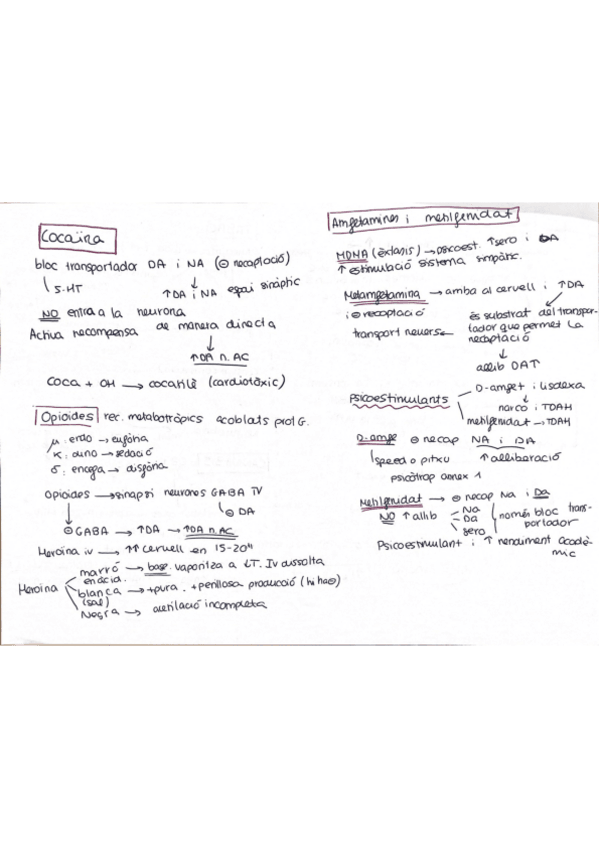 Cocaïna
bloc transportador DA i NA (⊖ recaptació)
↳ 5-HT ↑DA i NA espai sinàptic
NO entra a la neurona
Activa recompensa de manera directa
↑DA n. AC
coca + OH → cocatilè (cardiotòxic)
Opioides rec. metabotròpics acoblats prot G.
μ: endo → eufòria
κ: dino → sedació
σ: encefa → disfòria
Opioides → sinapsi neurones GABA TV
↳ ⊖ DA
⊖ GABA → ↑DA → ↑DA n. AC
Heroïna iv → ↑↑ cervell en 15-20"
Heroïna
marró → base. vaporitza a ↓T. IV dissolta
blanca (sal) → + pura. + perillosa producció
Negra → acetilació incompleta
Amfetamines i metilfenidat
MDMA (èxtasis) → psicoest. ↑sero i DA
↑ estimulació sistema simpàtic.
Metamfetamina → arriba al cervell i ↑DA
i ⊖ recaptació
transport revers ←
és substrat del transpor-
tador que permet la
recaptació
↓
allib DAT
Psicoestimulants
D-amfet i lisdexa
↓
narco i TDAH
metilfenidat → TDAH
D-amfe ⊖ recap NA i DA
↳ speed o pitxu ↑ alliberació
psicòtrop annex 1
Metilfenidat → ⊖ recap Na i Da
NO ↑ allib
Na
Da
sero
només bloc trans-
portador
Psicoestimulant i ↑ rendiment acadè-
mic